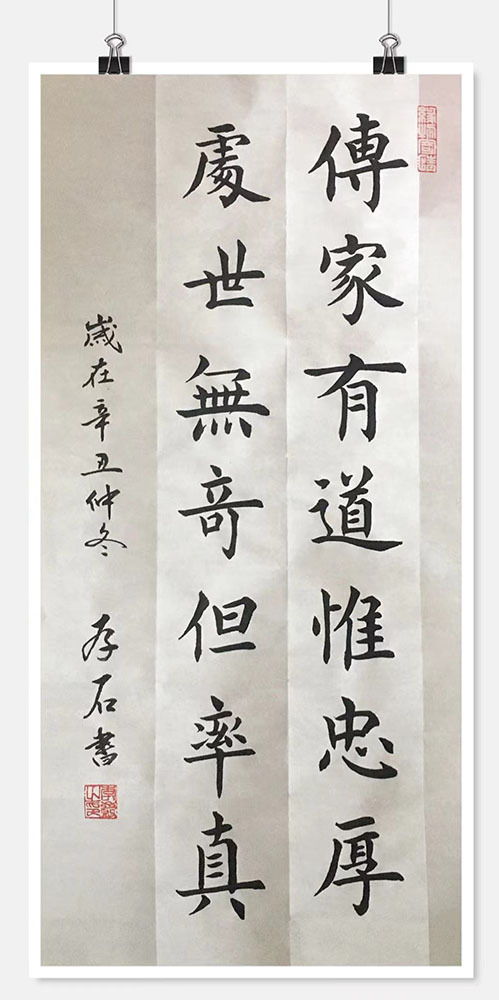 傳家有道惟忠厚
處世無奇但率真
歲在辛丑仲冬 存石書